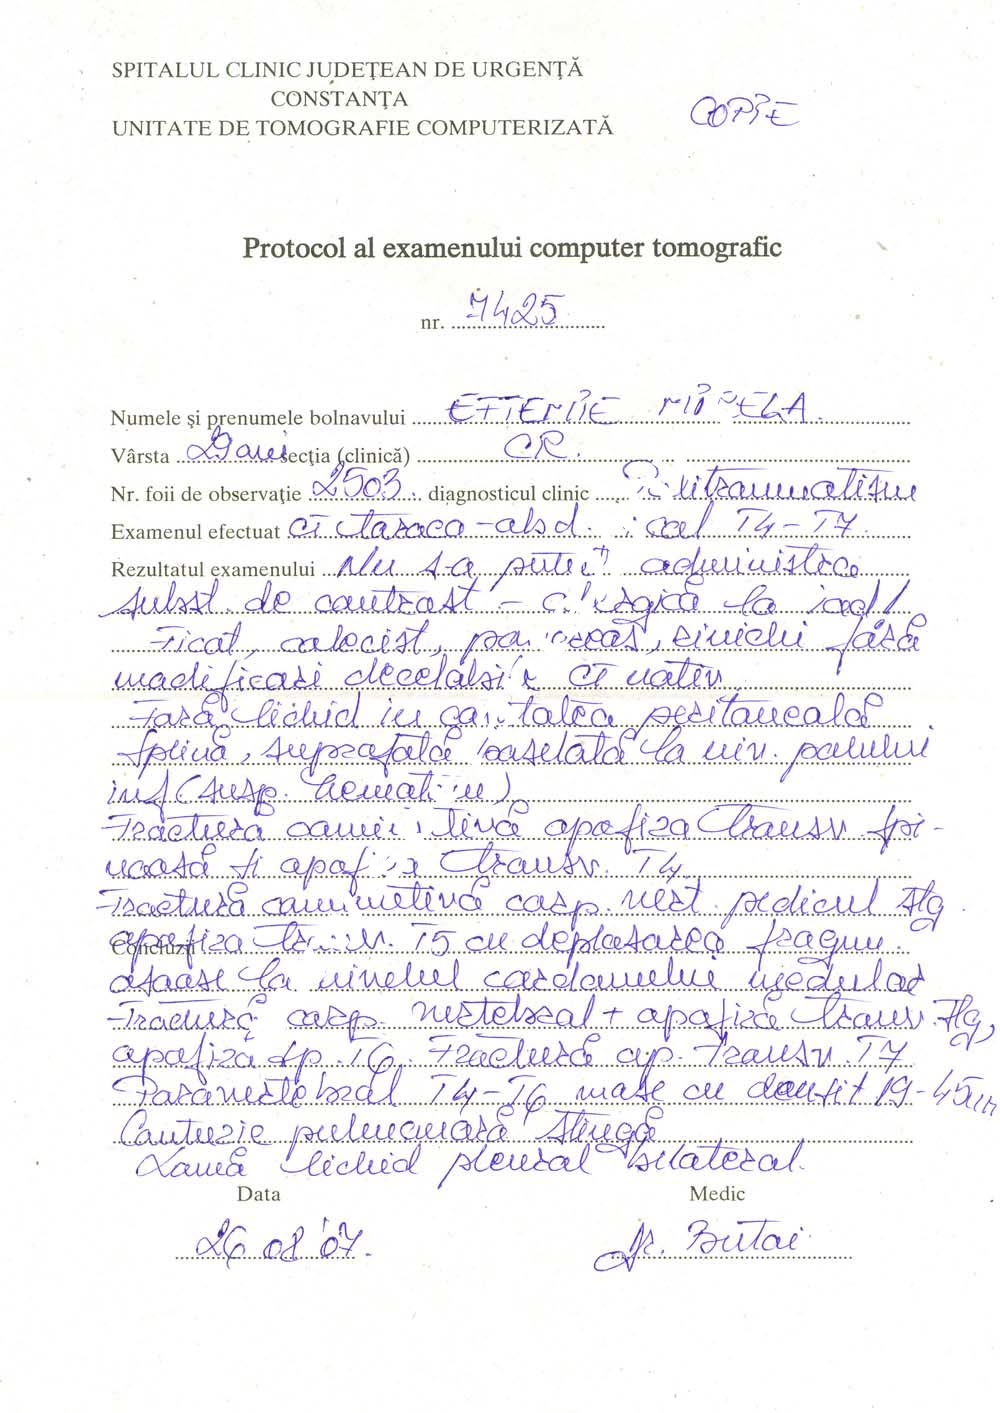 SPITALUL CLINIC JUDEŢEAN DE URGENŢĂ
CONSTANŢA
UNITATE DE TOMOGRAFIE COMPUTERIZATĂ
COPIE
Protocol al examenului computer tomografic
nr. 7425
Numele şi prenumele bolnavului EFTENIE
Vârsta secţia (clinică) CR.
Nr. foii de observaţie 2503 diagnosticul clinic Politraumatism
Examenul efectuat CT toraco-abd. T4-T7
Rezultatul examenului Nu s-a putut administra
subst. de contrast - alergică la iod!
Ficat, colecist, pancreas, rinichi fără
modificări decelabile CT nativ
Fără lichid în cavitatea peritoneală
Splină, suprafață boselată la niv. polului
inf (susp. hematom)
Fractură cominutivă apofiza transv. spi-
noasă și apofiza transv. T4
Fractură cominutivă corp. vert. pedicul stg
apofiza transv. T5 cu deplasarea fragm.
Concluzii
osoase la nivelul cordonului medular
Fractură corp. vertebral + apofiză transv. stg,
apofiză sp. T6. Fractură ap. transv. T7
Paravertebral T4-T6 mase cu densit 19-45UH
Contuzie pulmonară stângă
Lamă lichid pleural bilateral.
Data Medic
26 08 '07. Dr. Butoi